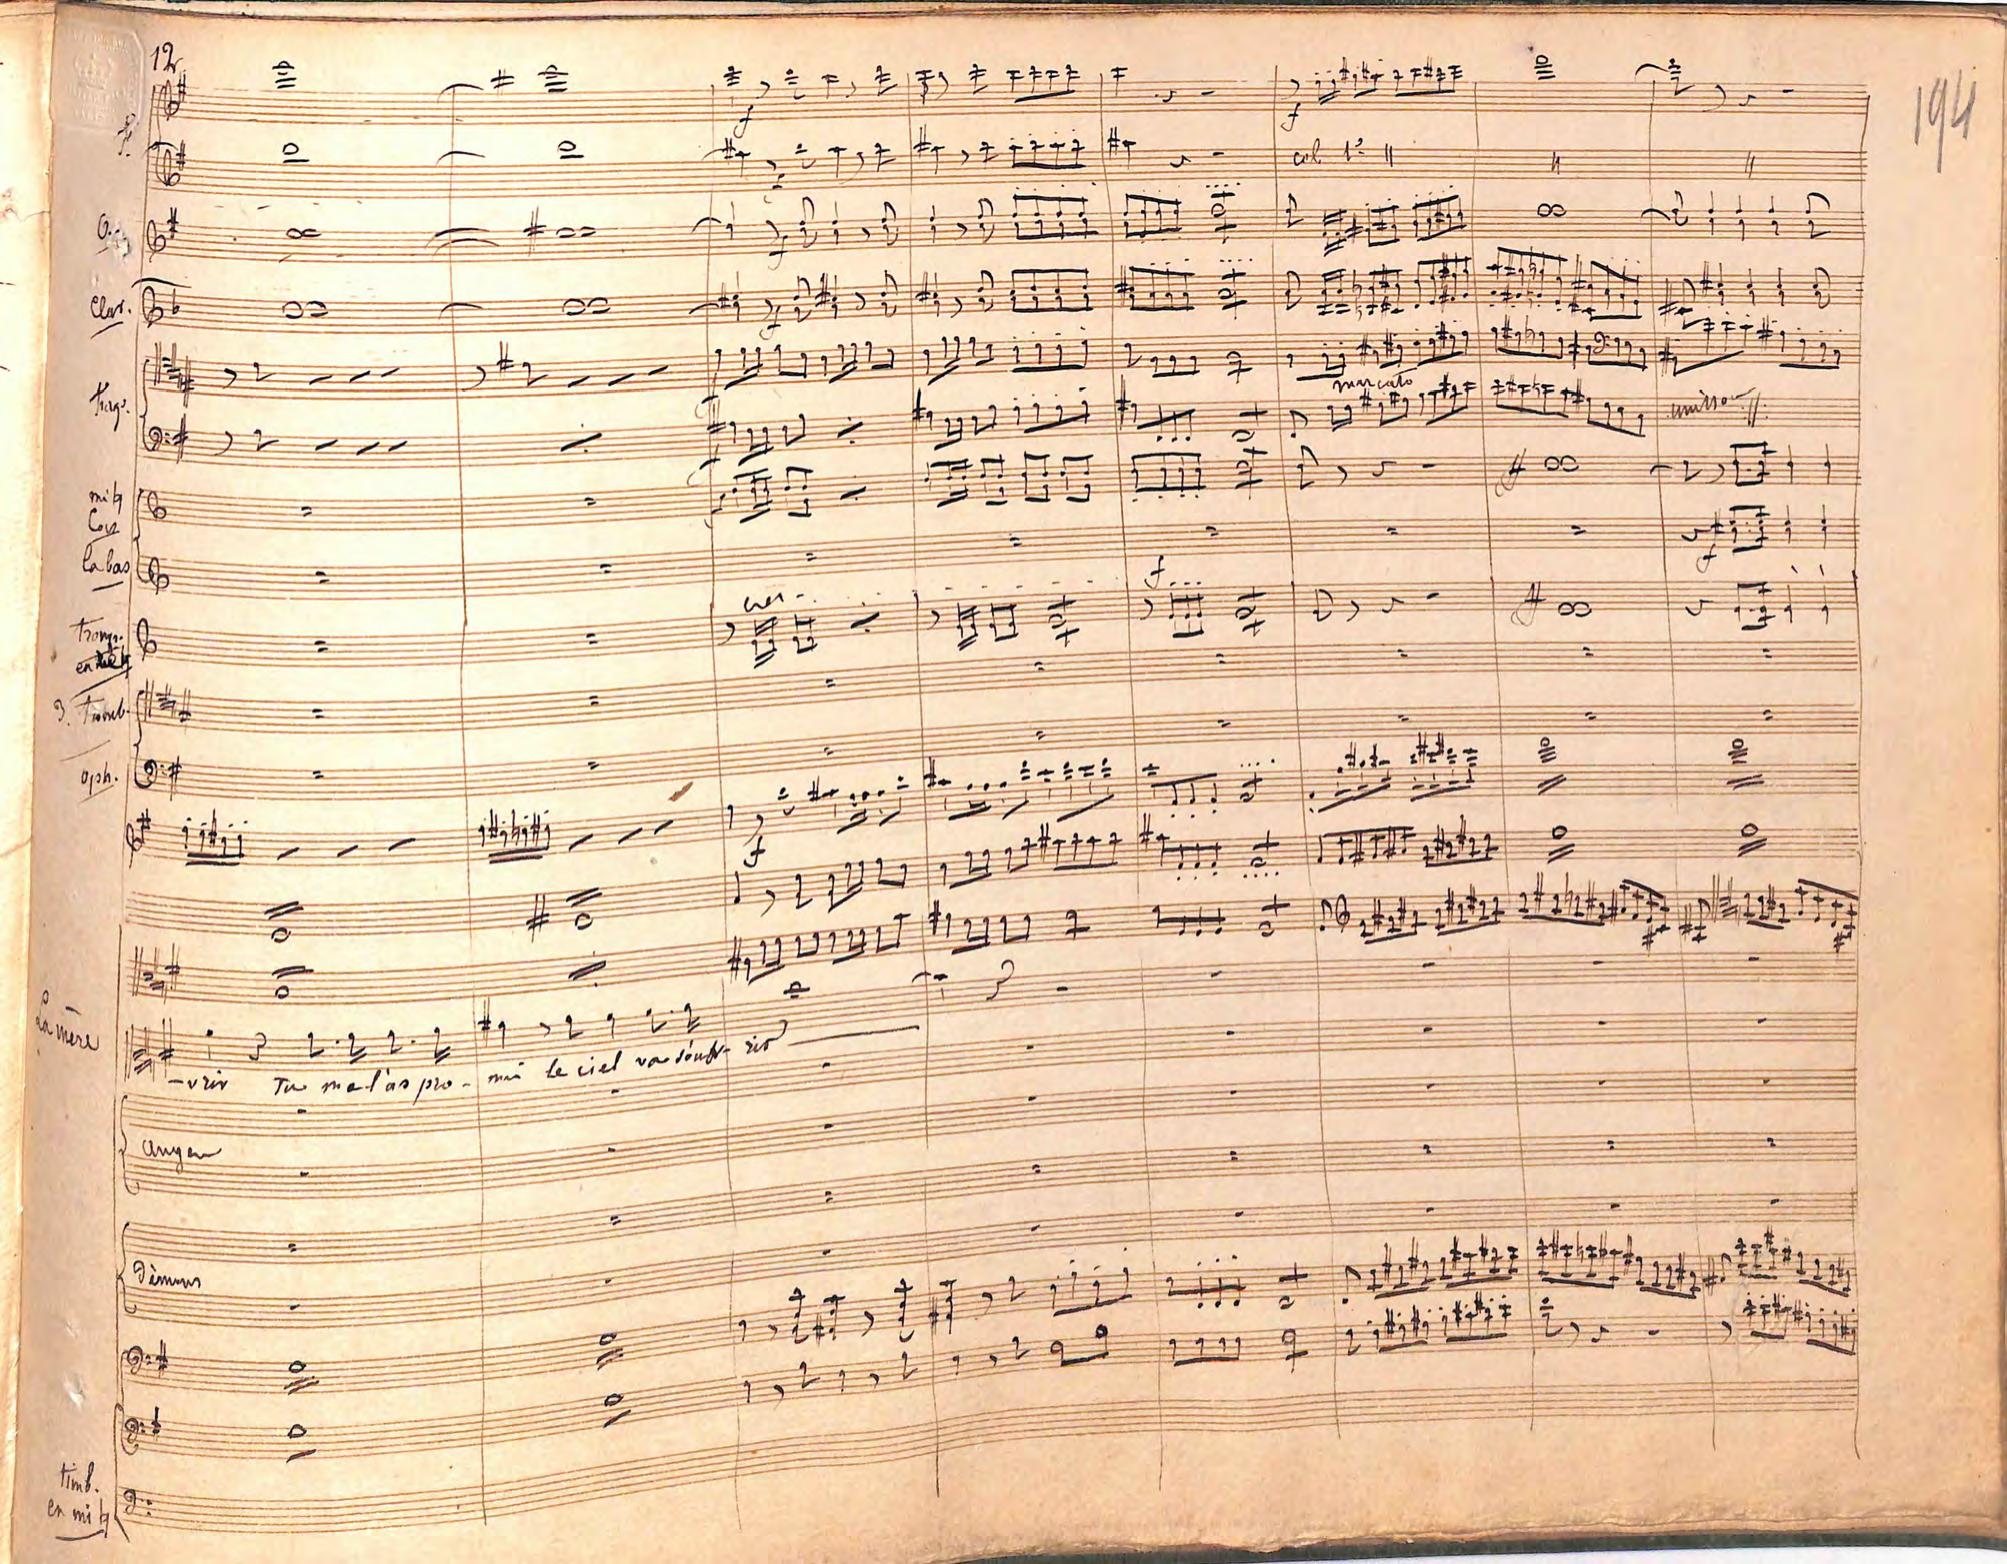 12
194
f.
col 1º
Clar.
marcato
unisson
mi♮
Cors
La bas
cres-
Tromp.
en mi♮
3. Tromb.
oph.
La mère
-vrir Tu me l'as pro-mis le ciel va s'ouvrir
anges
Démons
timb.
en mi♮